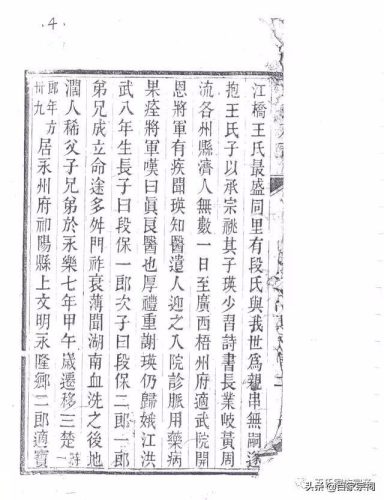 .4
江橋王氏最盛同里有段氏與我世爲親串無嗣逐
抱王氏子以承宗祧其子瑛少習詩書長業岐黃周
流各州縣濟人無數一日至廣西梧州府適武院開
恩將軍有疾聞瑛知醫遣人迎之入院診脈用藥病
果痊將軍嘆曰眞良醫也厚禮重謝瑛仍歸娥江洪
武八年生長子曰段保一郎次子曰段保二郎一郎
弟兄成立命途多舛門祚衰薄聞湖南血洗之後地
濶人稀父子兄弟於永樂七年甲午歲遷移三楚
郎年方卅九居永州府祁陽縣上文明永隆鄉二郎適寶
头条 @百家宗祠